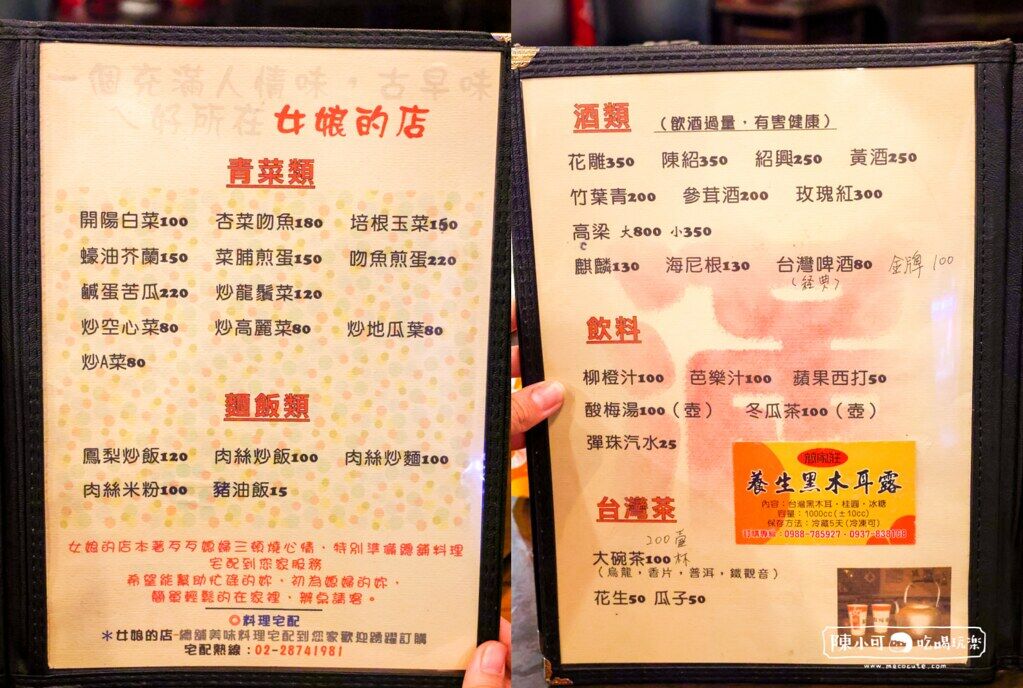 一個充滿人情味，古早味
ㄟ好所在 女娘的店
青菜類
開陽白菜100 杏菜吻魚180 培根玉菜150
蠔油芥蘭150 菜脯煎蛋150 吻魚煎蛋220
鹹蛋苦瓜220 炒龍鬚菜120
炒空心菜80 炒高麗菜80 炒地瓜葉80
炒A菜80
麵飯類
鳳梨炒飯120 肉絲炒飯100 肉絲炒麵100
肉絲米粉100 豬油飯15
女娘的店本著歹歹媳婦三頓燒心情，特別準備總舖料理
宅配到您家服務
希望能幫助忙碌的妳，初為媳婦的妳，
簡單輕鬆的在家裡，辦桌請客。
料理宅配
＊女娘的店-總舖美味料理宅配到您家歡迎踴躍訂購
宅配熱線：02-28741981
酒類 （飲酒過量，有害健康）
花雕350 陳紹350 紹興250 黃酒250
竹葉青200 參茸酒200 玫瑰紅300
高梁 大800 小350
麒麟130 海尼根130 台灣啤酒80 金牌 100
（経典）
飲料
柳橙汁100 芭樂汁100 蘋果西打50
酸梅湯100（壺） 冬瓜茶100（壺）
彈珠汽水25
養生黑木耳露
內容：台灣黑木耳，桂圓，冰糖
容量：1000cc(±10cc)
保存方法：冷藏5天(冷凍可)
訂購專線：0988-785927、0937-838158
台灣茶
200壺
大碗茶100杯
（烏龍，香片，普洱，鐵觀音）
花生50 瓜子50
陳小可 吃喝玩樂
www.mecocute.com